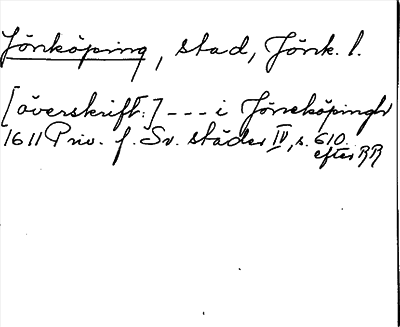 Jönköping, stad, Jönk. l.
[överskrift:] --- i Jöneköpingh
1611 Priv. f. Sv. städer IV, s. 610.
efter RR